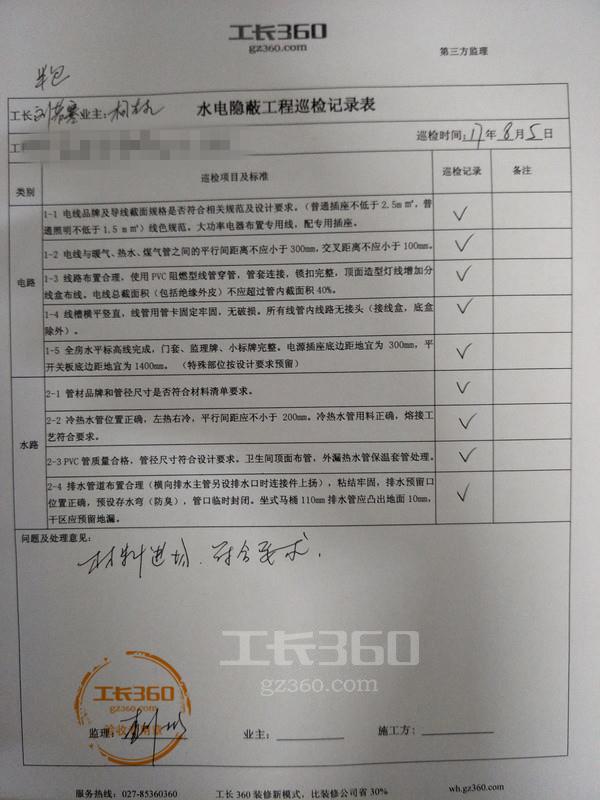 工长360
gz360.com
第三方监理
半包
工长 业主:
水电隐蔽工程巡检记录表
巡检时间: 17年8月5日
类别 巡检项目及标准 巡检记录 备注
电路
1-1 电线品牌及导线截面规格是否符合相关规范及设计要求。(普通插座不低于2.5m㎡,普
通照明不低于1.5 m㎡)线色规范。大功率电器布置专用线，配专用插座。
1-2 电线与暖气、热水、煤气管之间的平行间距离不应小于300mm,交叉距离不应小于100mm。
1-3 线路布置合理，使用PVC阻燃型线管穿管，管套连接，锁扣完整，顶面造型灯线增加分
线盒布线。电线总截面积(包括绝缘外皮)不应超过管内截面积40%。
1-4 线槽横平竖直，线管用管卡固定牢固，无破损。所有线管内线路无接头(接线盒，底盒
除外)。
1-5 全房水平标高线完成，门套、监理牌、小标牌完整。电源插座底边距地宜为 300mm,平
开关板底边距地宜为1400mm。 (特殊部位按设计要求预留)
水路
2-1 管材品牌和管径尺寸是否符合材料清单要求。
2-2 冷热水管位置正确，左热右冷，平行间距应不小于 200mm。冷热水管用料正确，熔接工
艺符合要求。
2-3 PVC管质量合格，管径尺寸符合设计要求。卫生间顶面布管，外漏热水管保温套管处理。
2-4 排水管道布置合理(横向排水主管另设排水口时连接件上扬)，粘结牢固，排水预留口
位置正确，预设存水弯(防臭)，管口临时封闭。坐式马桶110mm排水管应凸出地面10mm,
干区应预留地漏。
问题及处理意见:
材料进场．符合要求．
工长360
gz360.com
工长360
监理: 业主: 施工方:
服务热线: 027-85360360 工长360装修新模式，比装修公司省30% wh.gz360.com